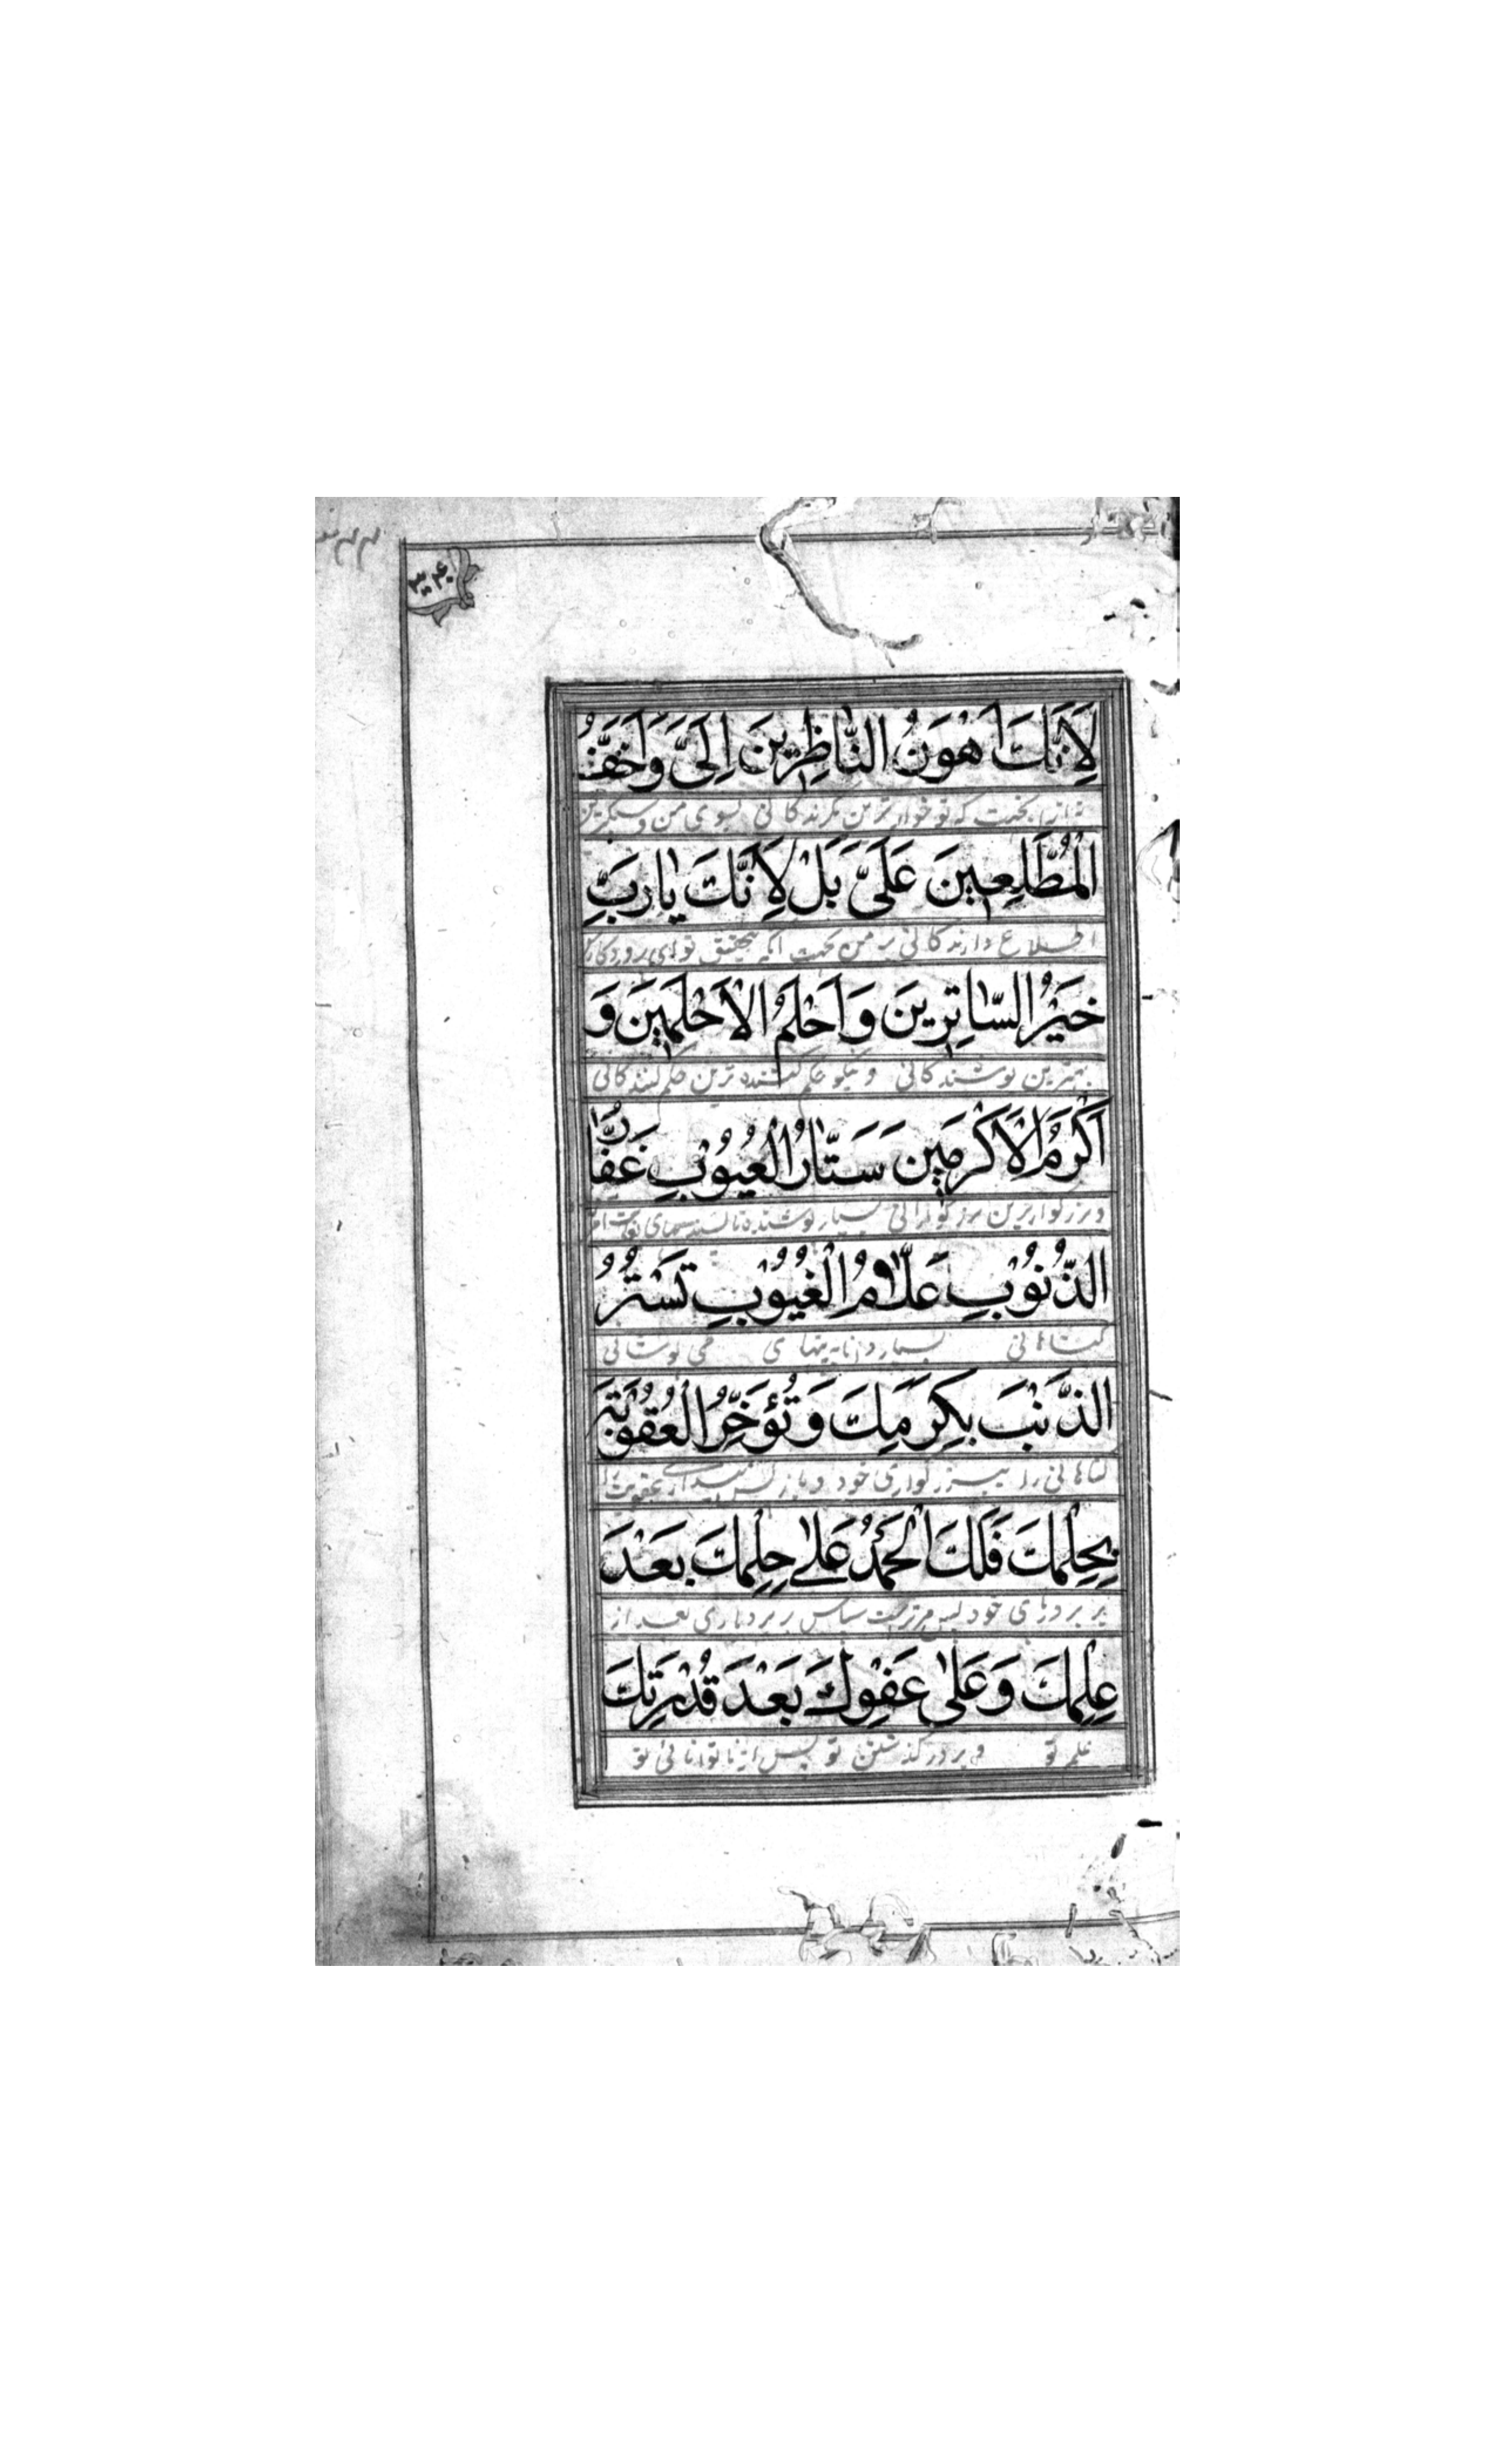 لِاَنَّكَ اَهْوَنُ النَّاظِرِينَ اِلَىَّ وَاَخَفُّ
نه از این بجهت که تو خوارترین نگرندگانی بسوی من و سبکترین
الْمُطَّلِعِينَ عَلَىَّ بَلْ لِاَنَّكَ يٰارَبِّ
اطلاع دارندگانی بر من بجهت آنکه بتحقیق تو ای پروردگار
خَيْرُ السّٰاتِرِينَ وَ اَحْلَمُ الْاَحْلَمِينَ وَ
بهترین پوشندگانی و نیکو حلم کننده ترین حلم کنندگانی
اَكْرَمُ الْاَكْرَمِينَ سَتَّارُ الْعُيُوْبِ غَفّٰارُ
و بزرگوارترین بزرگوارانی بسیار پوشنده
الذُّنُوْبِ عَلّٰامُ الْغُيُوْبِ تَسْتُرُ
گناهانی بسیار دانا به پنهانی می پوشانی
الذَّنْبَ بِكَرَمِكَ وَ تُؤَخِّرُ الْعُقُوْبَةَ
گناهانی را ببزرگواری خود و باز پس میداری عقوبت را
بِحِلْمِكَ فَلَكَ الْحَمْدُ عَلٰى حِلْمِكَ بَعْدَ
بر بردباری خود پس مر تراست سپاس بر بردباری بعد از
عِلْمِكَ وَ عَلٰى عَفْوِكَ بَعْدَ قُدْرَتِكَ
علم تو و بر درگذشتن تو پس از توانائی تو